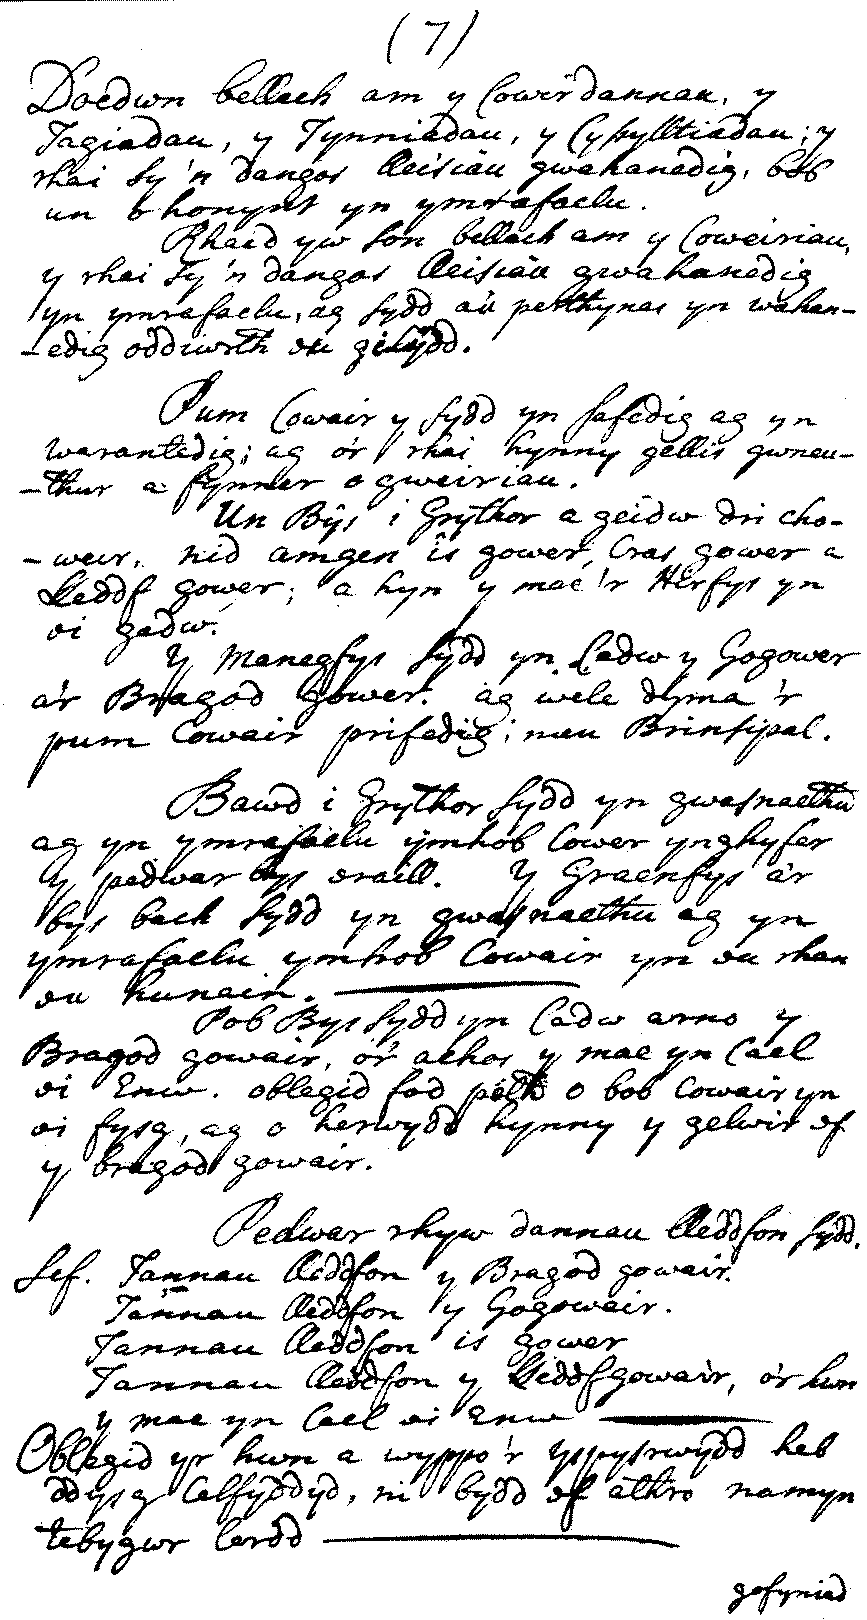 (7)
Doedwn bellach am y Cowirdannau, y
Tagiadau, y Tynniadau, y Cysylltiadau; y
rhai sy'n dangos lleisiau gwahanedig, bob
un o honynt yn ymrafaelu.
Rhaid yw son bellach am y Coweiriau,
y rhai sy'n dangos lleisiau gwahanedig
yn ymrafaelu, ag sydd a'u perthynas yn wahan-
-edig oddiwrth eu gilydd.
Pum Cowair y sydd yn safedig ag yn
warantedig; ag o'r rhai hynny gellir gwneu-
-thur a fynner o gweiriau.
Un Bŷs i Grythor a geidw dri cho-
-weir, nid amgen îs gower, Cras gower a
Lleddf gower; a hyn y mae'r Hirfys yn
ei gadw.
Y Manegfys sydd yn Cadw y Gogower
a'r Bragod gower. ag wele dyma'r
pum Cowair prifedig; neu Brinsipal.
Bawd i Grythor sydd yn gwasnaethu
ag yn ymrafaelu ymhob Cower ynghyfer
y pedwar bys eraill. Y Graenfys a'r
bys bach sydd yn gwasnaethu ag yn
ymrafaelu ymhob Cowair yn eu rhan
eu hunain.
Pob Bys sydd yn Cadw arno y
Bragod gowair, o'r achos y mae yn Cael
ei Enw. oblegid fod peth o bob Cowair yn
ei fysg, ag o herwydd hynny y gelwir ef
y bragod gowair.
Pedwar rhyw dannau lleddfon sydd.
Sef. Tannau lleddfon y Bragod gowair.
Tannau lleddfon y Gogowair.
Tannau lleddfon is gower
Tannau lleddfon y lleddfgowair, o'r hwn
y mae yn Cael ei Enw
Oblegid yr hwn a wyppo'r yspysrwydd heb
ddysg Celfyddyd, ni bydd ef athro namyn
tebygwr Cerdd
gofyniad